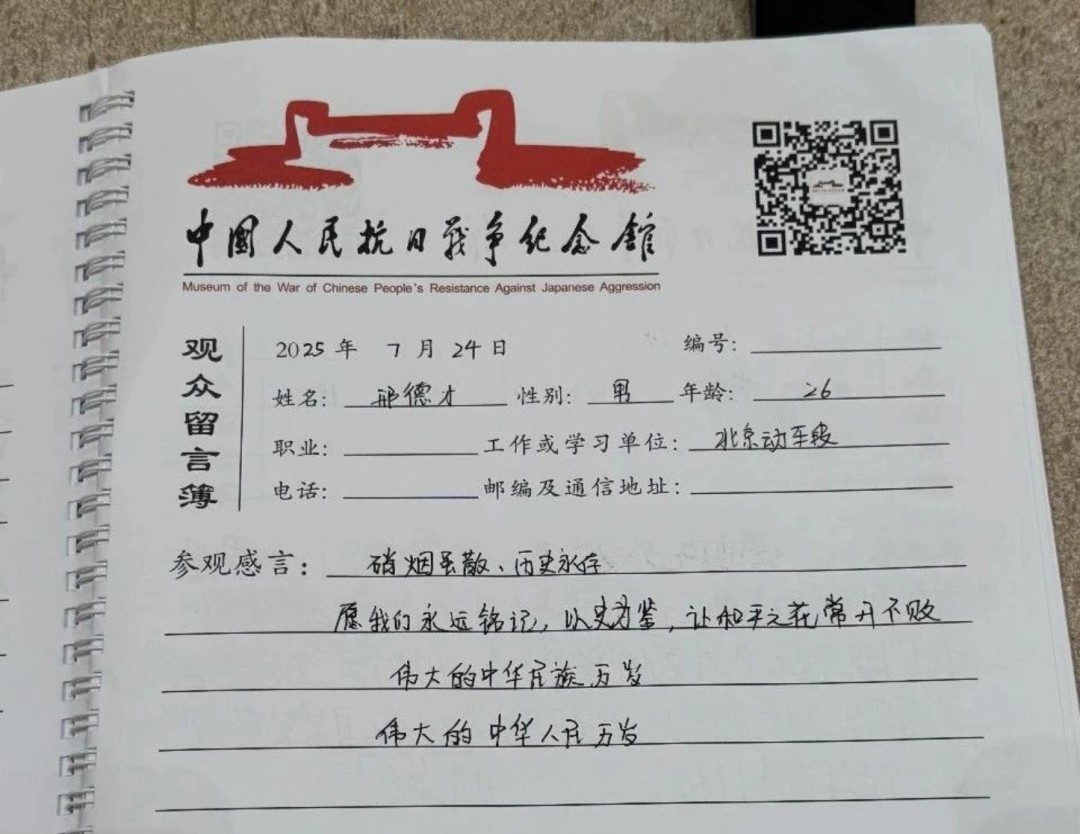 中國人民抗日戰争纪念館
Museum of the War of Chinese People's Resistance Against Japanese Aggression
观众留言簿
2025年 7月24日 编号:
姓名: 邢德才 性别: 男 年龄: 26
职业: 工作或学习单位: 北京动车段
电话: 邮编及通信地址:
参观感言: 硝烟虽散、历史永存
愿我们永远铭记,以史为鉴,让和平之花常开不败
伟大的中华民族万岁
伟大的中华人民万岁